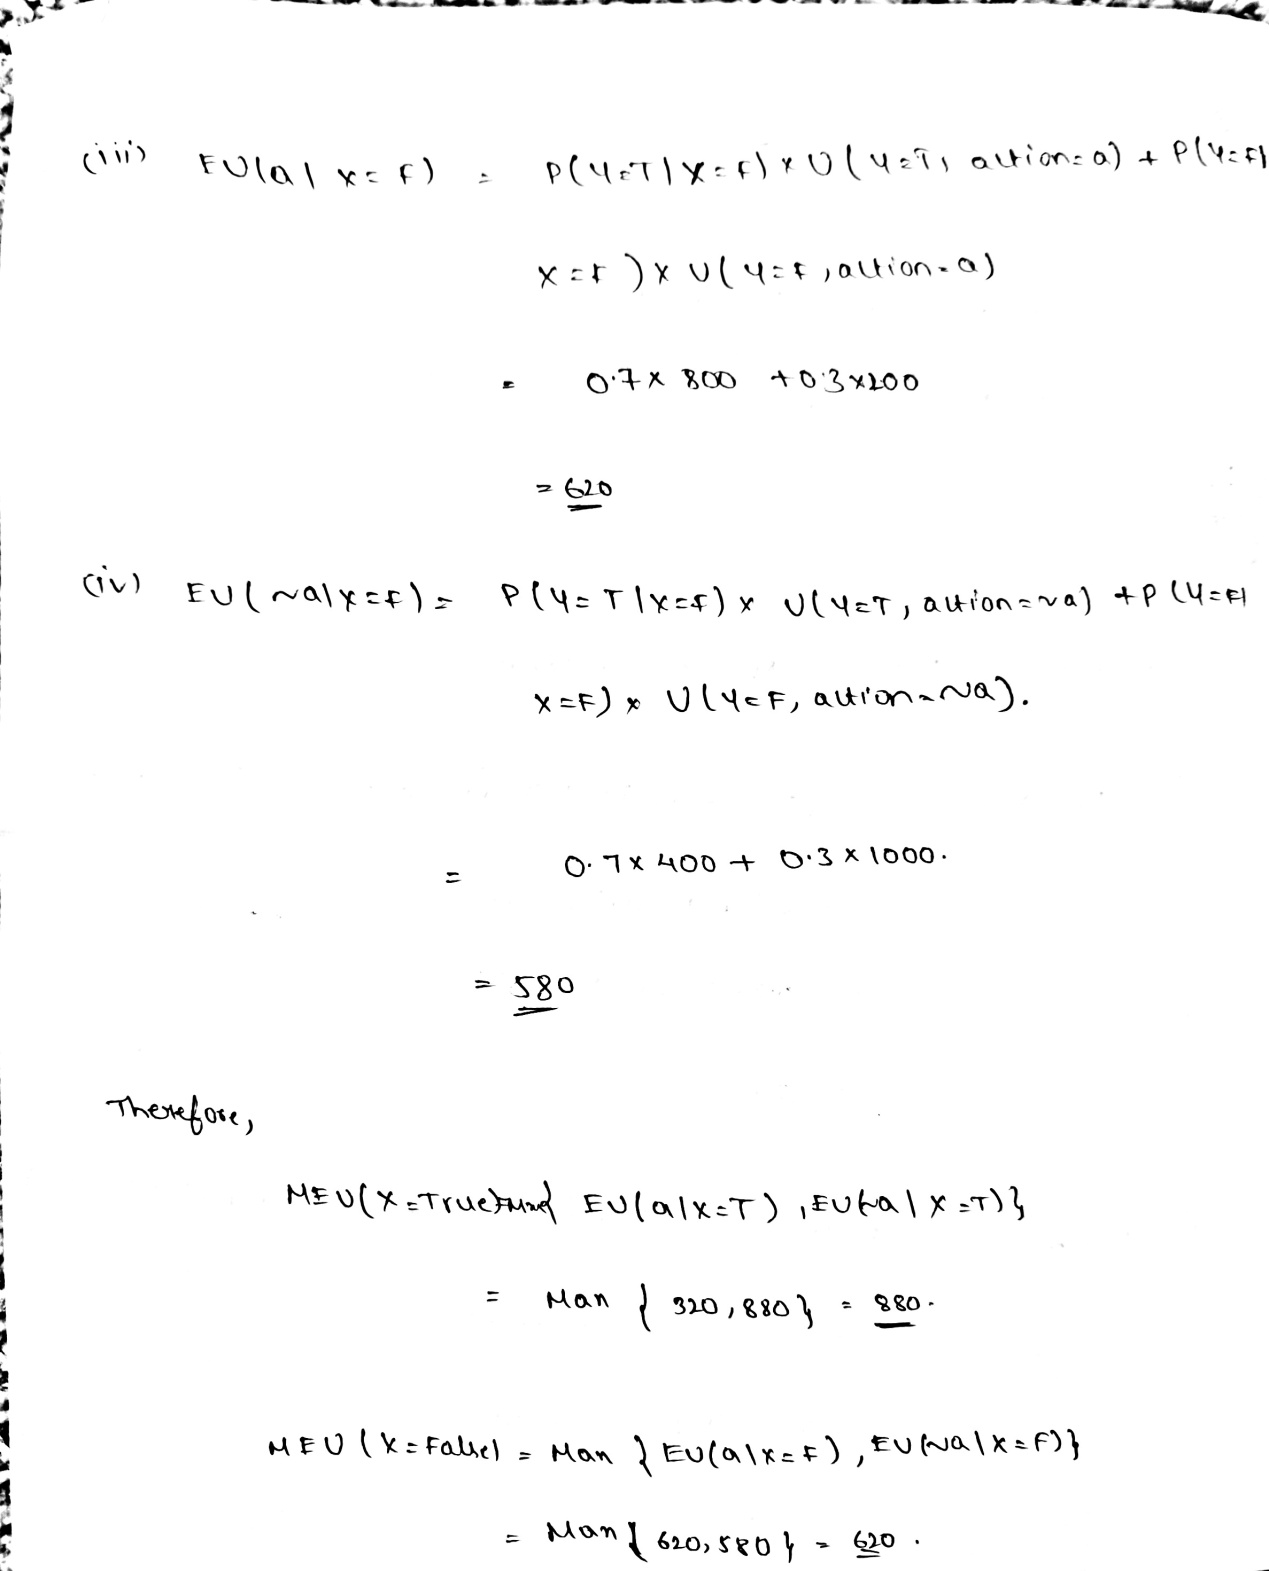 (iii) EU(a| x=F) = P(Y=T|X=F) x U(Y=T, action=a) + P(Y=F|
X=F) x U(Y=F, action=a)
= 0.7 x 800 + 0.3 x 200
= 620
(iv) EU(~a|x=F) = P(Y=T|X=F) x U(Y=T, action=~a) + P(Y=F|
X=F) x U(Y=F, action=~a).
= 0.7 x 400 + 0.3 x 1000.
= 580
Therefore,
MEU(X=True) = Max{ EU(a|x=T), EU(~a|X=T)}
= Max { 320, 880} = 880.
MEU (X=False) = Max { EU(a|x=F), EU(~a|x=F)}
= Max { 620, 580 } = 620.